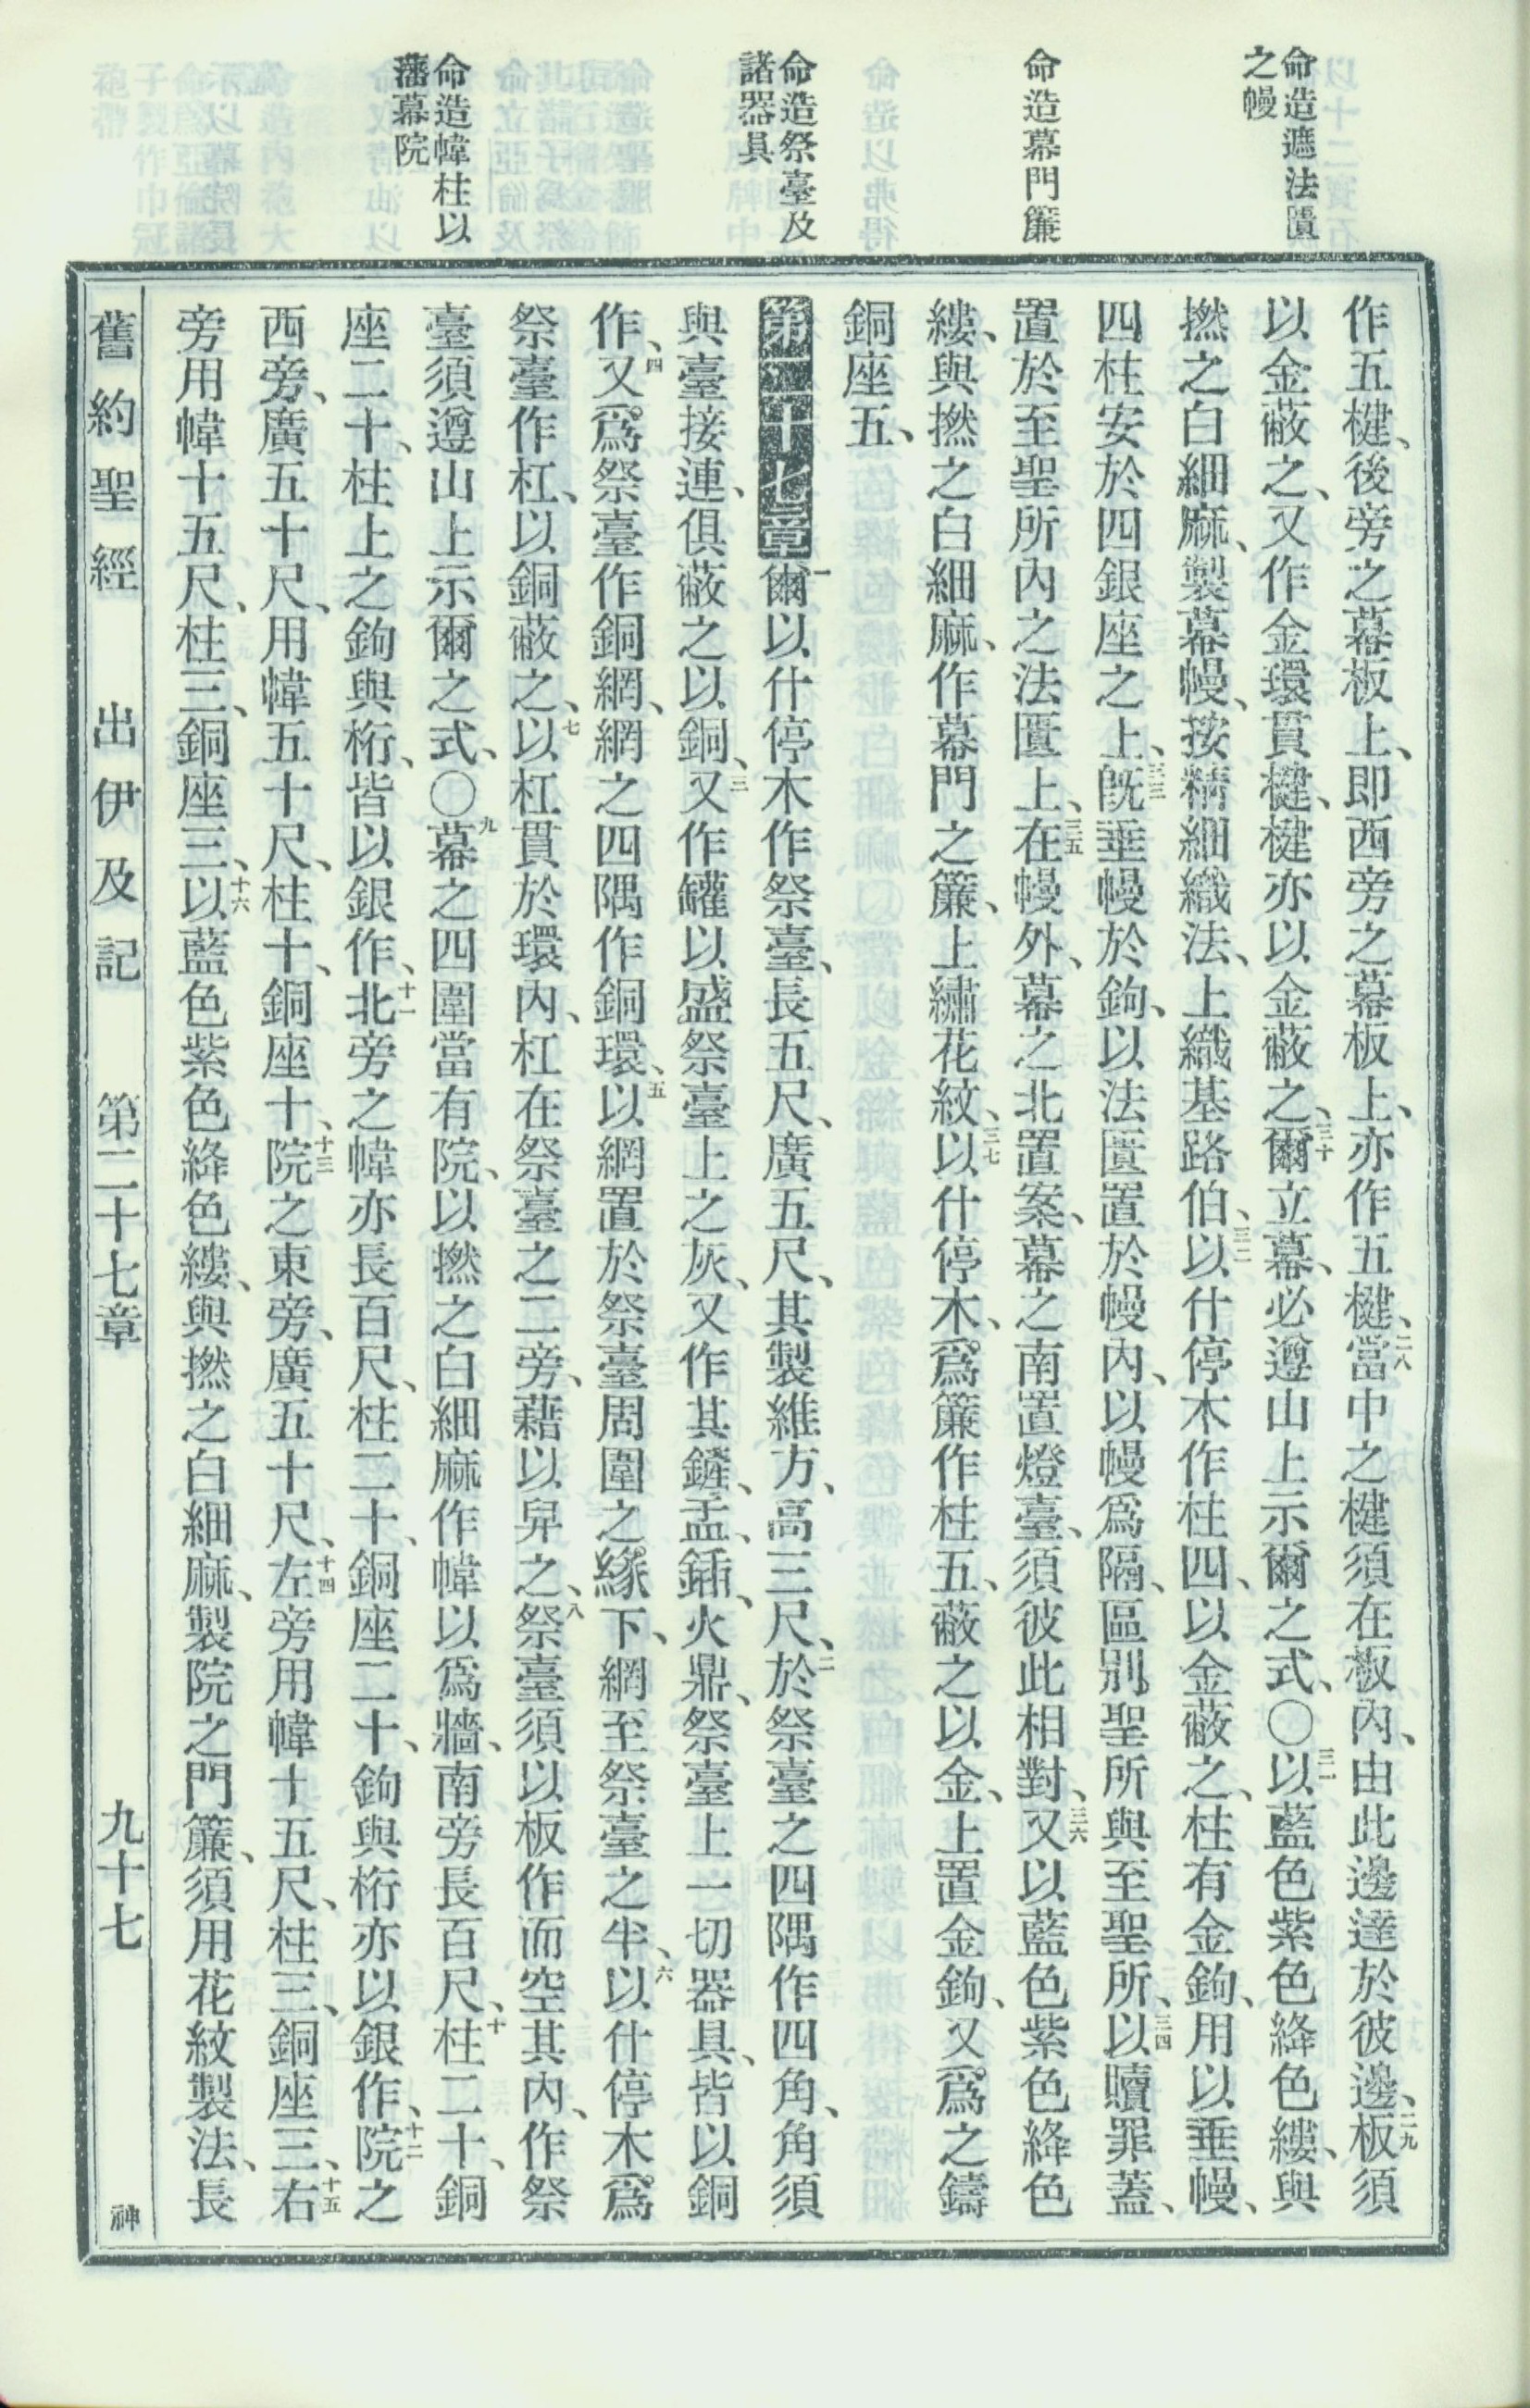 命造遮法匱
之幔
命造幕門簾
命造祭臺及
諸器具
命造幃柱以
藩幕院
作五楗、後旁之幕板上、即西旁之幕板上、亦作五楗、二八當中之楗須在板內、由此邊達於彼邊、二九板須
以金蔽之、又作金環貫楗、楗亦以金蔽之、三十爾立幕、必遵山上示爾之式、〇三一以藍色紫色絳色縷、與
撚之白細麻、製幕幔、按精細織法、上織基路伯、三二以什停木作柱四、以金蔽之、柱有金鉤、用以垂幔、
四柱安於四銀座之上、三三既垂幔於鉤、以法匱置於幔內、以幔爲隔、區別聖所與至聖所、三四以贖罪蓋、
置於至聖所內之法匱上、三五在幔外、幕之北置案、幕之南置燈臺、須彼此相對、三六又以藍色紫色絳色
縷、與撚之白細麻、作幕門之簾、上繡花紋、三七以什停木、爲簾作柱五、蔽之以金、上置金鉤、又爲之鑄
銅座五、
第二十七章一爾以什停木作祭臺、長五尺、廣五尺、其製維方、高三尺、二於祭臺之四隅作四角、角須
與臺接連、俱蔽之以銅、三又作罐以盛祭臺上之灰、又作其鏟、盂、鍤、火鼎、祭臺上一切器具、皆以銅
作、四又爲祭臺作銅網、網之四隅作銅環、五以網置於祭臺周圍之緣下、網至祭臺之半、六以什停木、爲
祭臺作杠、以銅蔽之、七以杠貫於環內、杠在祭臺之二旁、藉以舁之、八祭臺須以板作而空其內、作祭
臺須遵山上示爾之式、〇九幕之四圍當有院、以撚之白細麻作幃以爲牆、南旁長百尺、十柱二十、銅
座二十、柱上之鉤與桁、皆以銀作、十一北旁之幃亦長百尺、柱二十、銅座二十、鉤與桁亦以銀作、十二院之
西旁、廣五十尺、用幃五十尺、柱十、銅座十、十三院之東旁、廣五十尺、十四左旁用幃十五尺、柱三、銅座三、十五右
旁用幃十五尺、柱三、銅座三、十六以藍色紫色絳色縷、與撚之白細麻、製院之門簾、須用花紋製法、長
舊約聖經 出伊及記 第二十七章 九十七 神